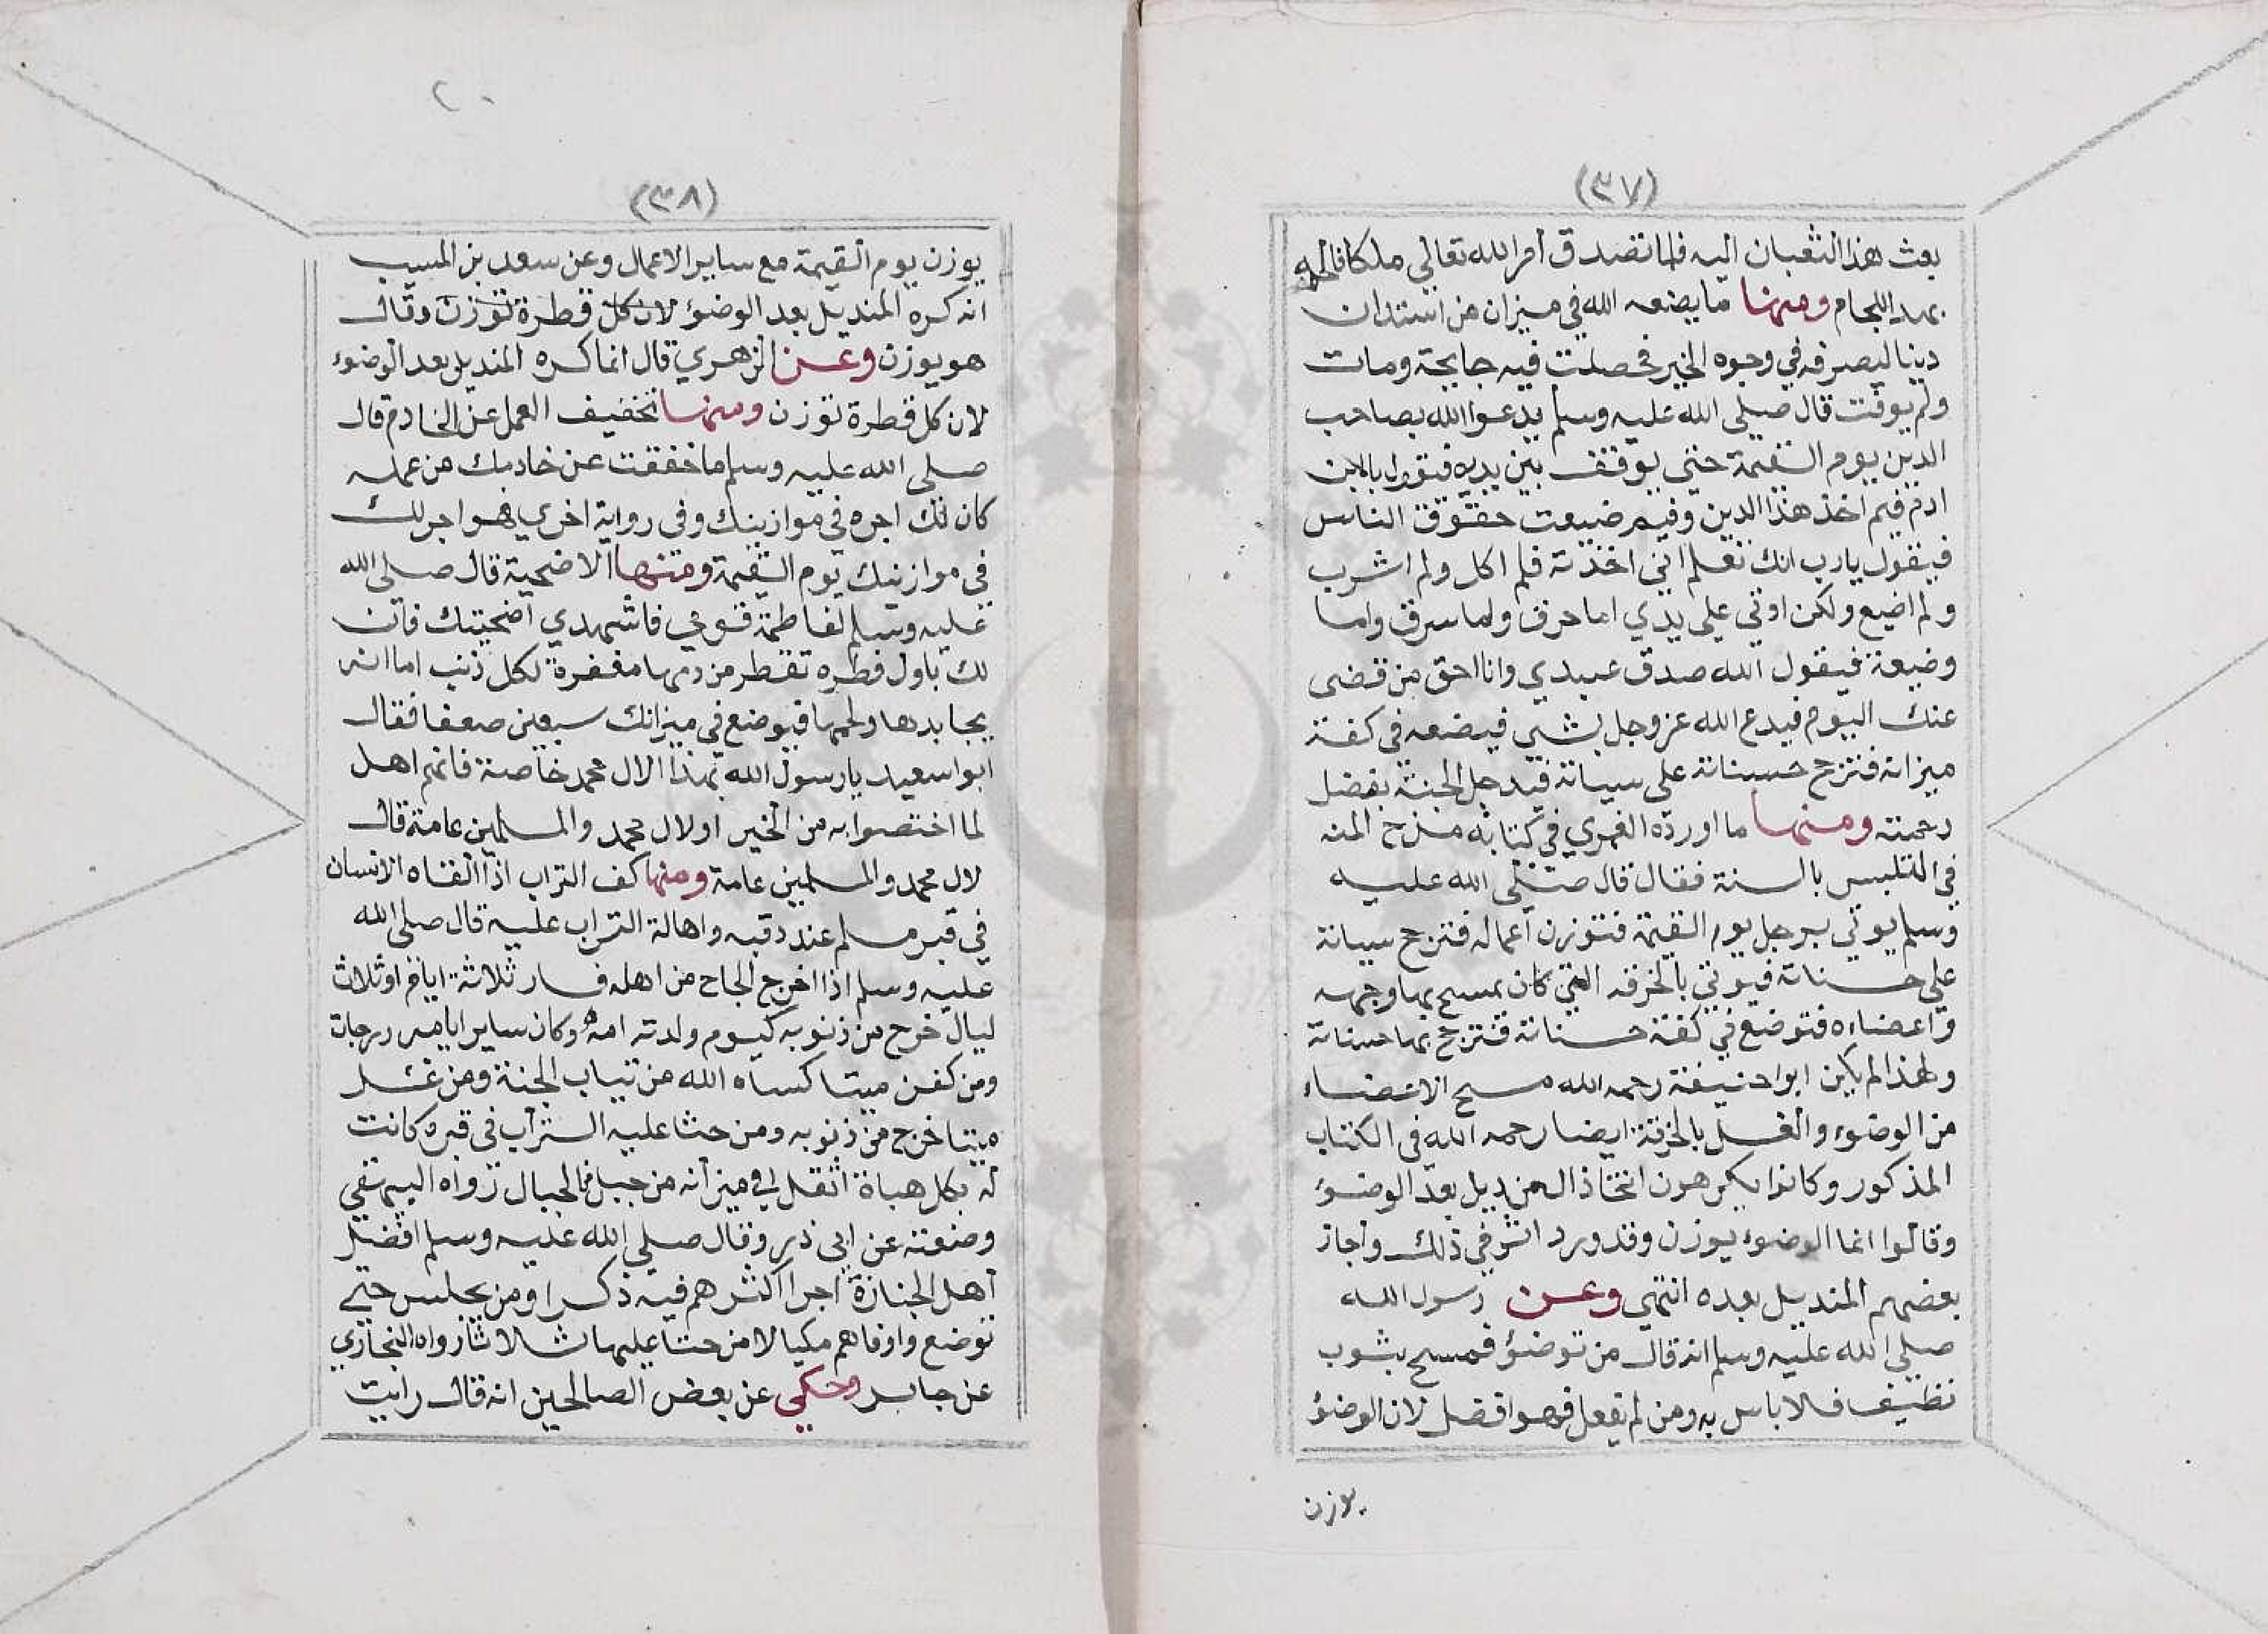 (٣٧)
بعث هذا الثعبان اليه فلما تصدق امر الله تعالي ملكا فالجمه
بهذا اللجام ومنها ما يضعه الله في ميزان من استدان
دينا ليصرفه في وجوه الخير فحصلت فيه جايحة ومات
ولم يوفت قال صلي الله عليه وسلم يدعوا الله بصاحب
الدين يوم القيمة حتي يوقف بين يديه فيقول يا ابن
ادم فيم اخذ هذا الدين وفيم ضيعت حقوق الناس
فيقول يارب انك تعلم اني اخذته فلم اكل ولم اشرب
ولم اضيع ولكن اوتي علي يدي اما حرق واما سرق واما
وضيعة فيقول الله صدق عبدي وانا احق من قضي
عنك اليوم فيدع الله عز وجل بشي فيضعه في كفة
ميزانه فترجح حسناته علي سياته فيدخل الجنة بفضل
رحمته ومنها ما اورده الغمري في كتابه منح المنه
في التلبس بالسنة فقال قال صلي الله عليه
وسلم يوتي برجل يوم القيمة فتوزن اعماله فترجح سياته
علي حسناته فيوتي بالخرقه التي كان يمسح بها وجهه
واعضاءه فتوضع في كفة حسناته فترجح بها حسناته
ولهذا لم يكن ابوا حنيفة رحمه الله مسح الاعضاء
من الوضوء والغسل بالخرقة ايضا رحمه الله في الكتاب
المذكور وكانوا يكرهون اتخاذ المنديل بعد الوضوء
وقالوا انما الوضوء يوزن وقد ورد اثر في ذلك واجاز
بعضهم المنديل بعده انتهي وعن رسول الله
صلي الله عليه وسلم انه قال من توضؤ فمسح بثوب
نظيف فلا باس به ومن لم يفعل فهو افضل لان الوضؤ
يوزن
٢٠
(٣٨)
يوزن يوم القيمة مع ساير الاعمال وعن سعد بن المسيب
انه كره المنديل بعد الوضؤ لان كل قطرة توزن وقال
هو يوزن وعن الزهري قال انما كره المنديل بعد الوضوء
لان كل قطرة توزن ومنها تخفيف العمل عن الخادم قال
صلي الله عليه وسلم ما خففت عن خادمك من عمله
كان لك اجره في موازينك وفي رواية اخري فهو اجر لك
في موازينك يوم القيمة ومنها الاضحية قال صلي الله
عليه وسلم لفاطمة قومي فاشهدي اضحيتك فان
لك باول قطره تقطر من دمها مغفرة لكل ذنب اما انه
يجا بدمها ولحمها فيوضع في ميزانك سبعين ضعفا فقال
ابوا سعيد يا رسول الله بهذا الال محمد خاصة فانهم اهل
لما اختصوا به من الخير او لال محمد والمسلمين عامة قال
لال محمد والمسلمين عامة ومنها كف التراب اذا القاه الانسان
في قبر مسلم عند دقبه واهالة التراب عليه قال صلي الله
عليه وسلم اذا اخرج الحاج من اهله فسار ثلاثة ايام او ثلاث
ليال خرج من ذنوبه كيوم ولدته امه وكان ساير ايامه درجات
ومن كفن ميتا كساه الله من ثياب الجنة ومن غسل
ميتا خرج من ذنوبه ومن حثا عليه التراب في قبره كانت
له بكل هباة اثقل في ميزانه من جبل من الجبال رواه البيهقي
وضعفه عن ابي ذر وقال صلي الله عليه وسلم افضل
اهل الجنازة اجرا اكثرهم فيه ذكرا ومن يجلس حتي
توضع واوفاهم مكيالا من حثا عليها ثلاثا رواه النجاري
عن جابر وحكي عن بعض الصالحين انه قال رايت